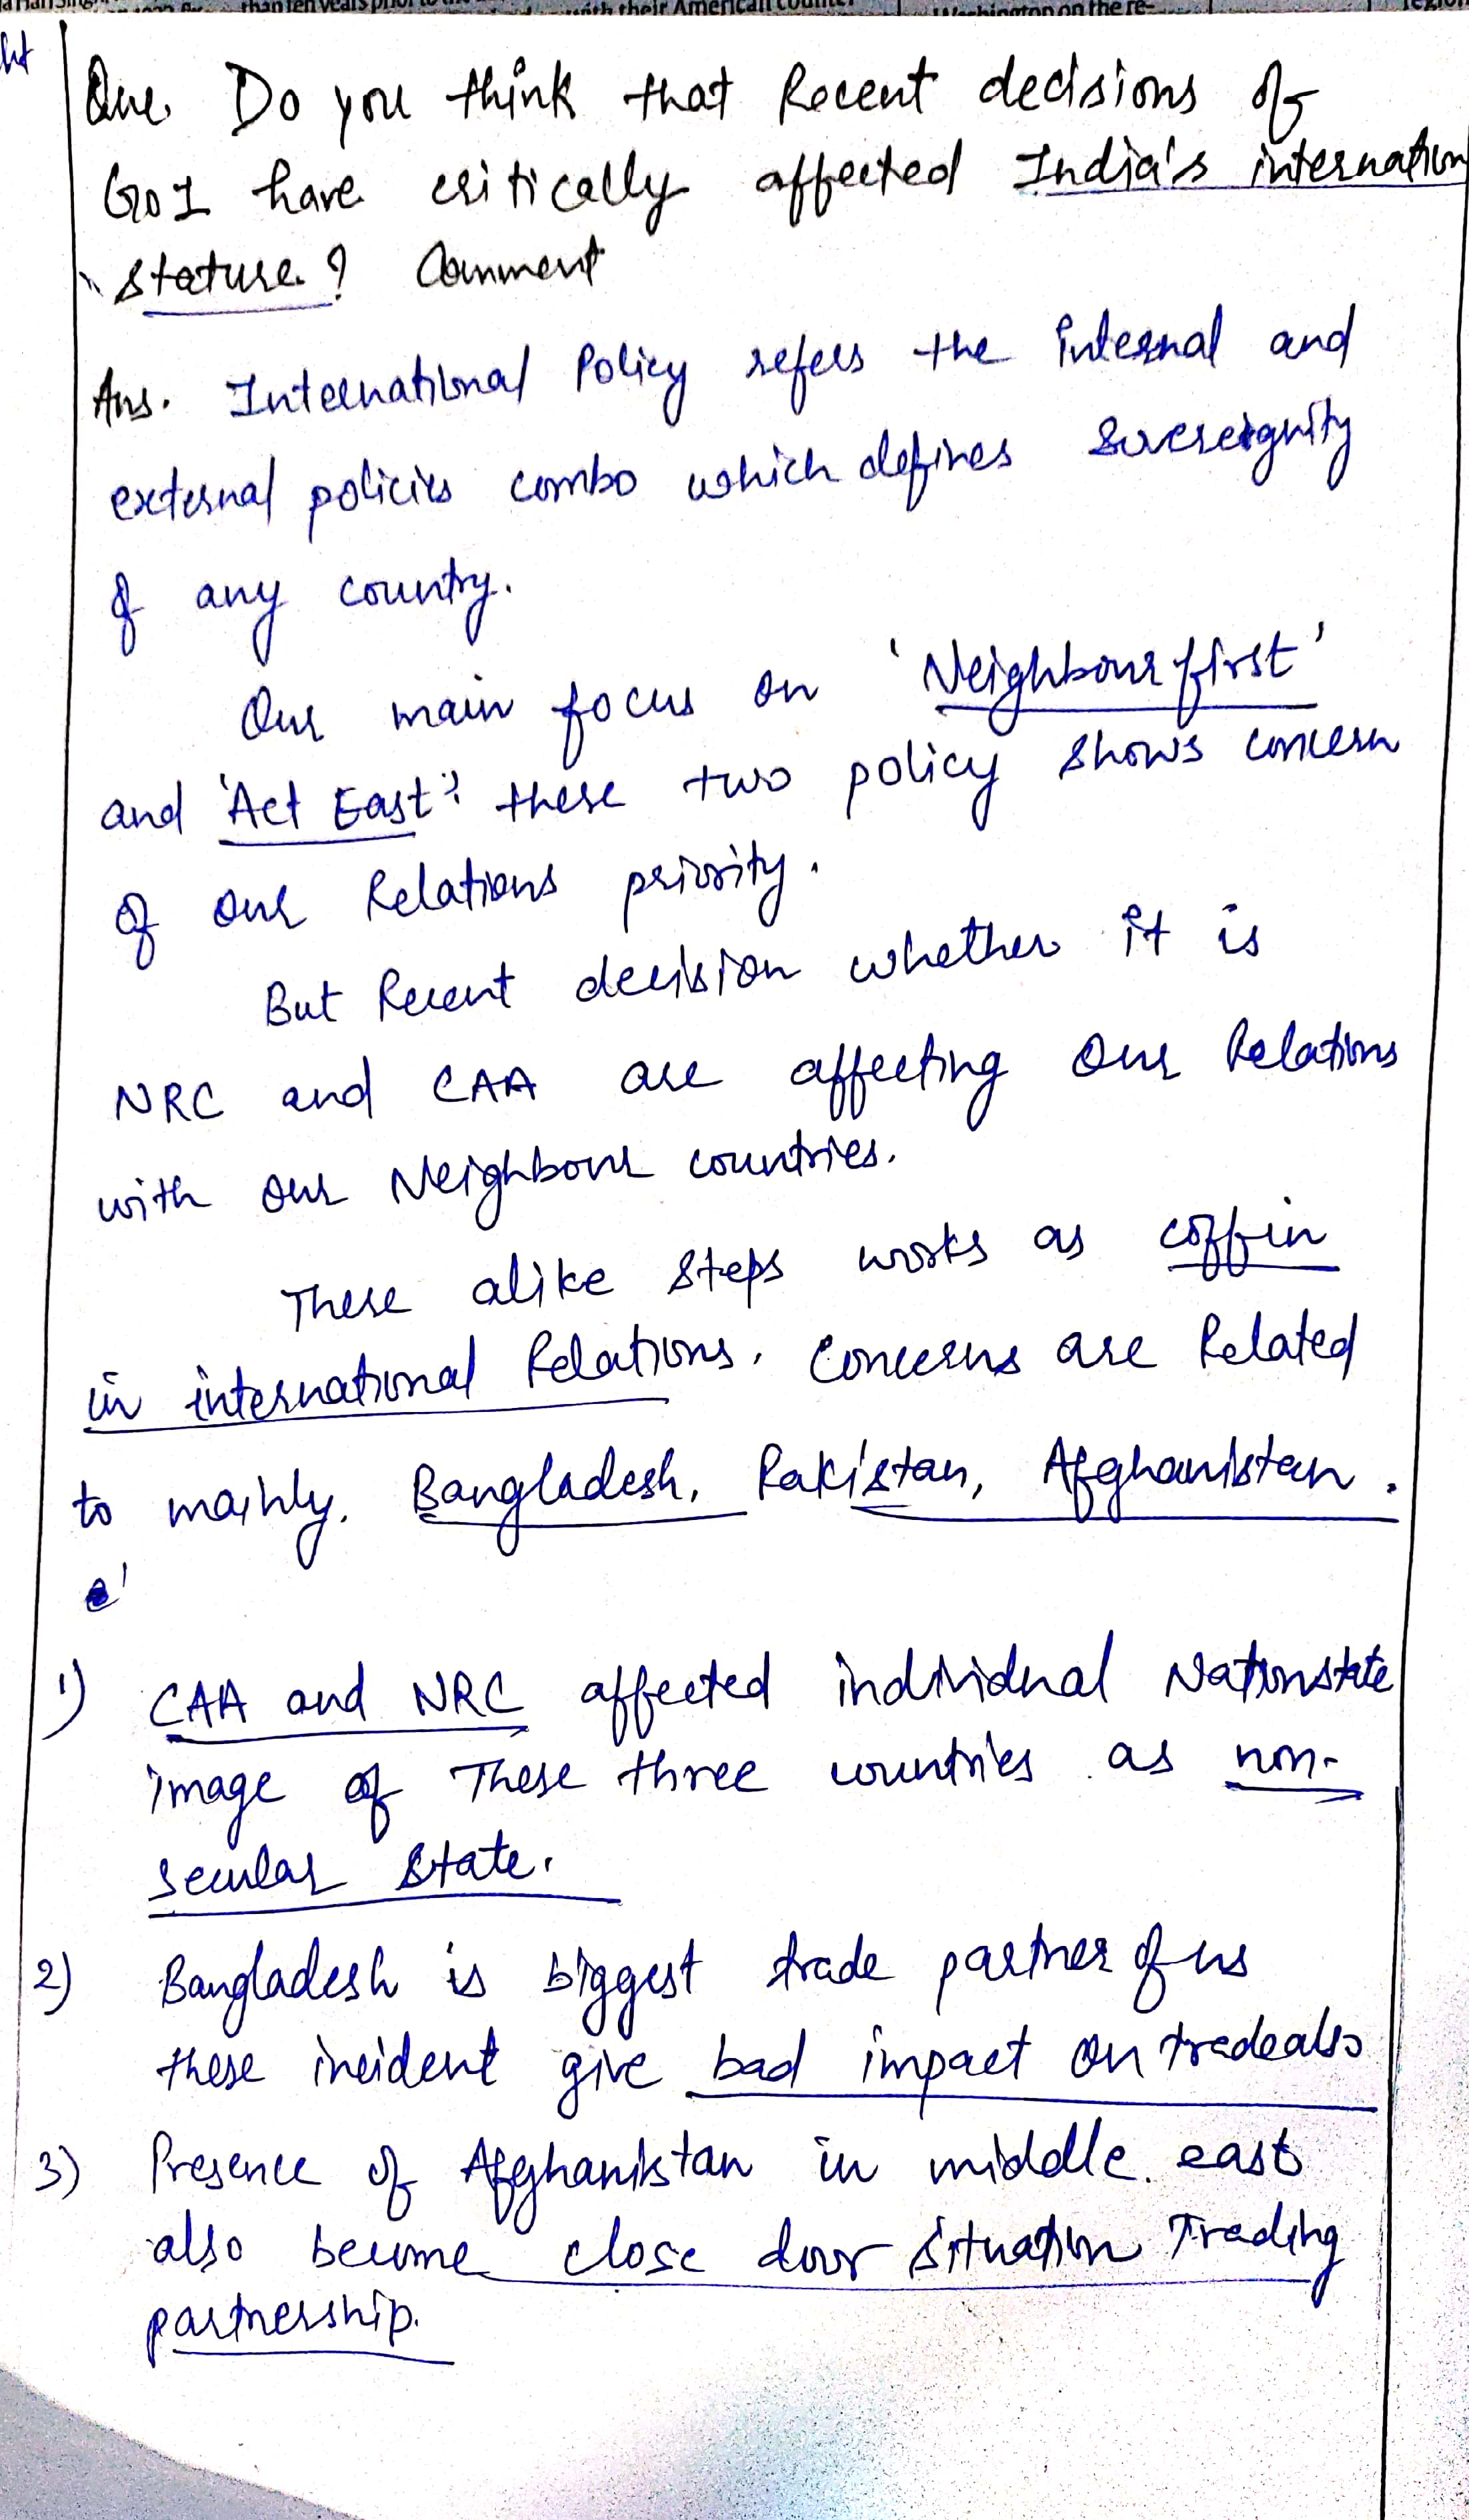 than ten years prior to the
with their American counter
Washington on the re-
Que. Do you think that Recent decisions of
GoI have critically affected India's internation
stature? Comment
Ans. International Policy refers the internal and
external policies combo which defines Sovereignity
of any country.
Our main focus on 'Neighbour first'
and 'Act East'. these two policy shows concern
of our Relations priority.
But Recent decision whether it is
NRC and CAA are affecting our Relations
with our Neighbour countries.
These alike steps works as coffin
in international Relations. Concerns are Related
to mainly. Bangladesh, Pakistan, Afghanistan.
1) CAA and NRC affected individual Nationstate
image of These three countries as non-
secular state.
2) Bangladesh is biggest trade partner of us
these incident give bad impact on trade also
3) Presence of Afghanistan in middle east
also become close door situation Trading
partnership.